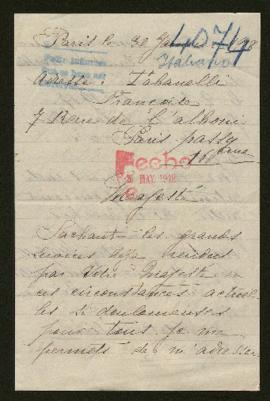 Paris le 30
40741
Italiano
Adresse: Tabanelli
Françoise
7 Rue de l'alboni
Paris passy
16
Fecho
MAY. 1918
Majesté
Sachant les grandes
déja rendues
par Votre Majesté en
ces circonstances actuel-
les si douloureuses
pour tous je me
permets de m'adresser